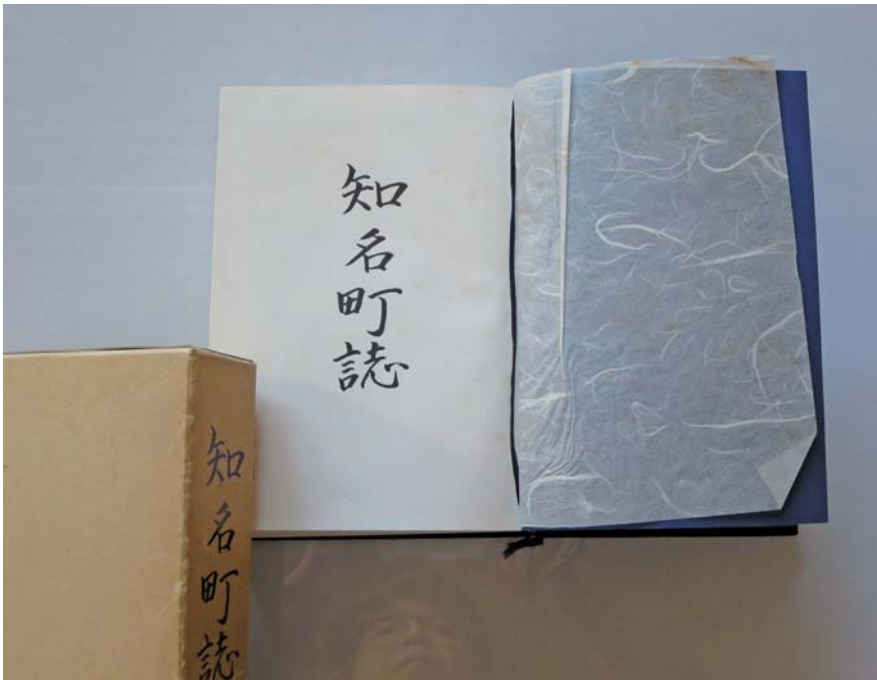 知名町誌
知名町誌